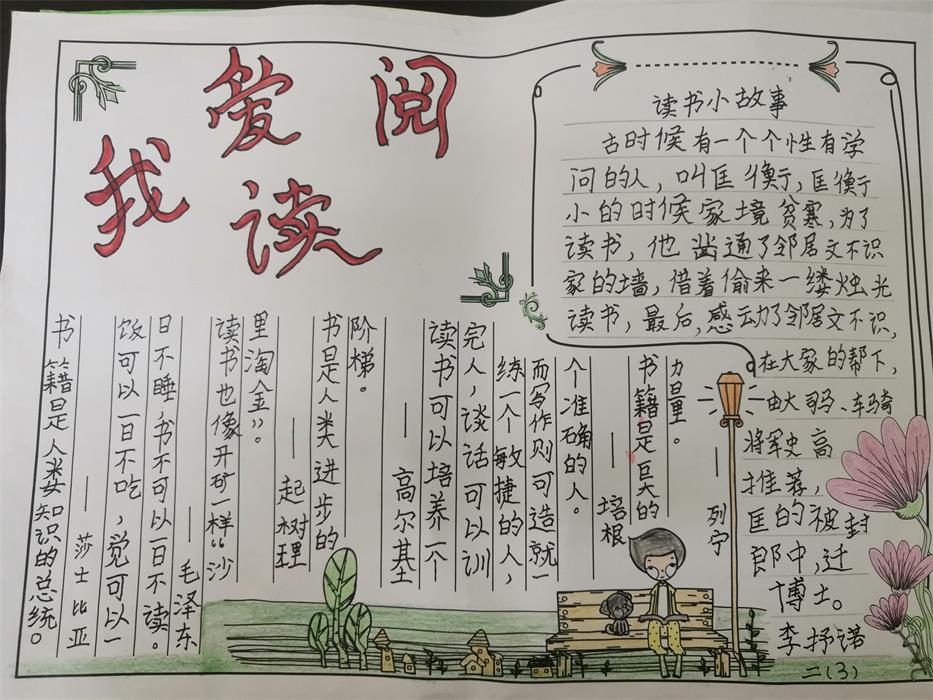 我爱阅读
书籍是人类知识的总统。
——莎士比亚
饭可以一日不吃，觉可以一
日不睡，书不可以一日不读。
——毛泽东
读书也像开矿一样“沙
里淘金”。
——起树理
书是人类进步的
阶梯。
——高尔基
读书可以培养一个
完人，谈话可以训
练一个敏捷的人，
而写作则可造就一
个准确的人。
——培根
书籍是巨大的
力量。
——列宁
读书小故事
古时候有一个个性有学
问的人，叫匡衡，匡衡
小的时候家境贫寒，为了
读书，他凿通了邻居文不识
家的墙，借着偷来一缕烛光
读书，最后，感动了邻居文不识，
在大家的帮下，
由大司马、车骑
将军史高
推荐，
匡的被封
郎中，迁
博士。
李抒诺
二（3）